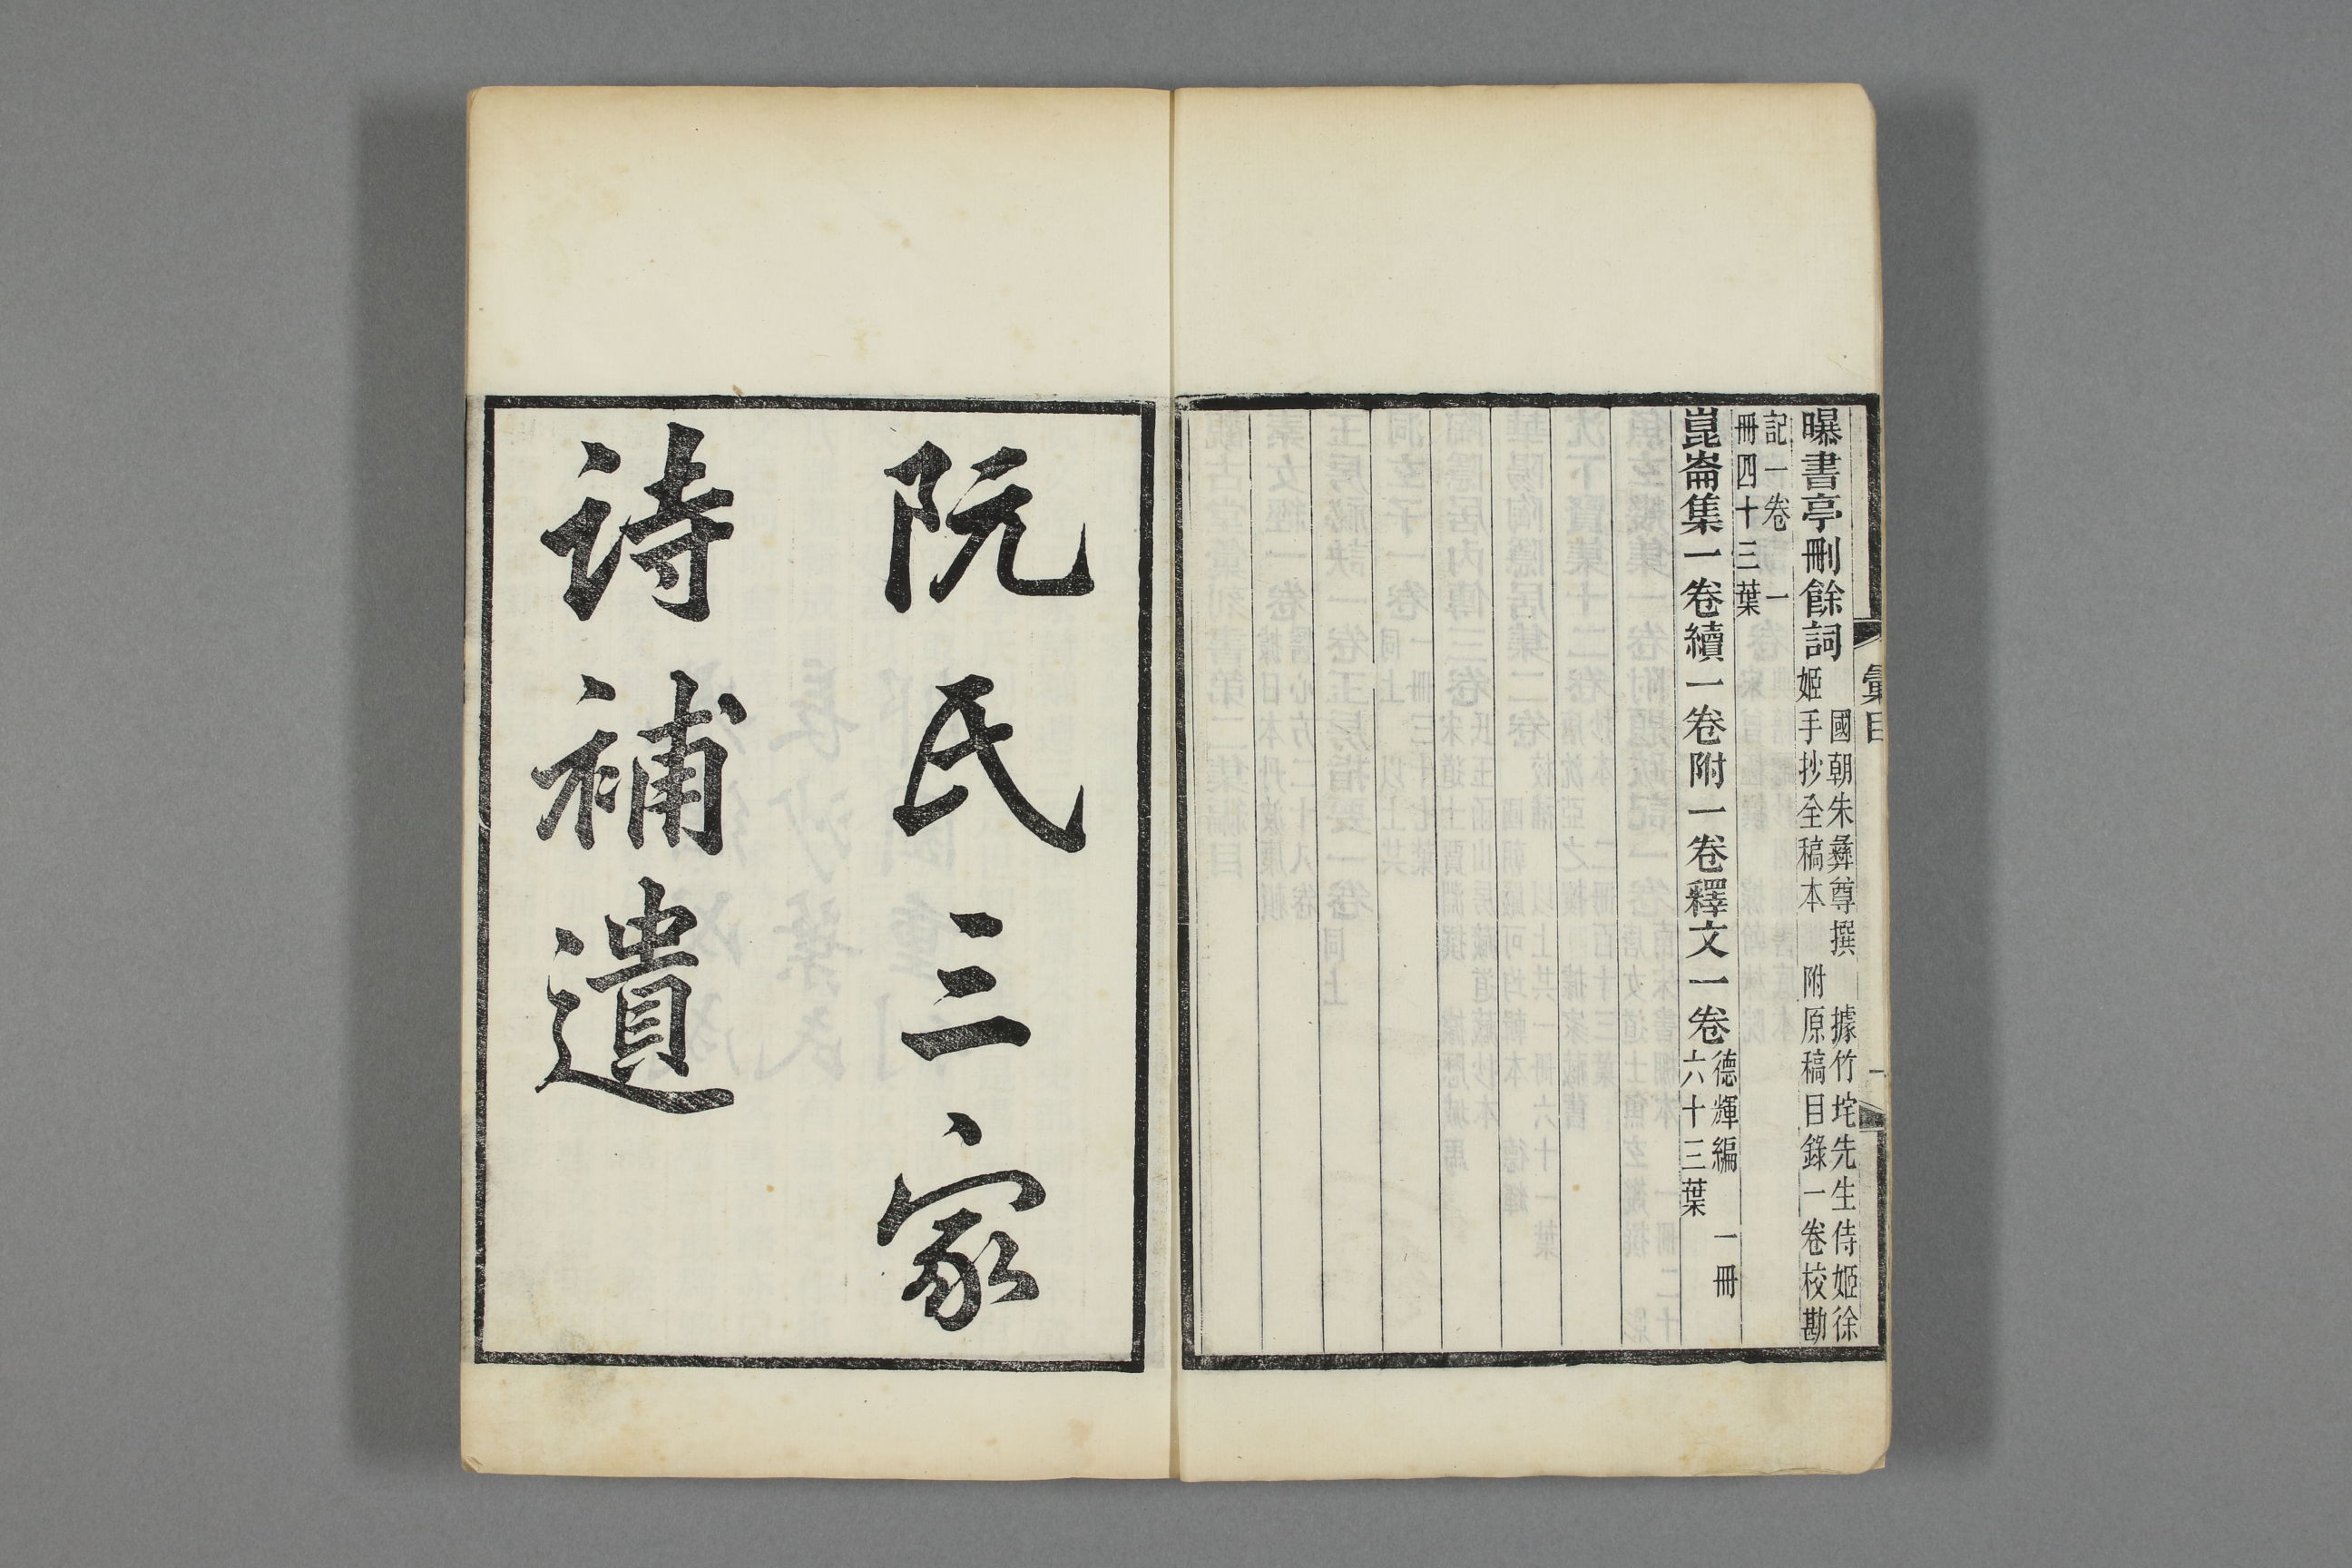 彙目
一
曝書亭刪餘詞
國朝朱彝尊撰 據竹垞先生侍姬徐
姬手抄全稿本 附原稿目錄一卷校勘
記一卷 一
冊四十三葉
崑崙集一卷續一卷附一卷釋文一卷
德輝編 一冊
六十三葉
阮氏三家
诗補遺